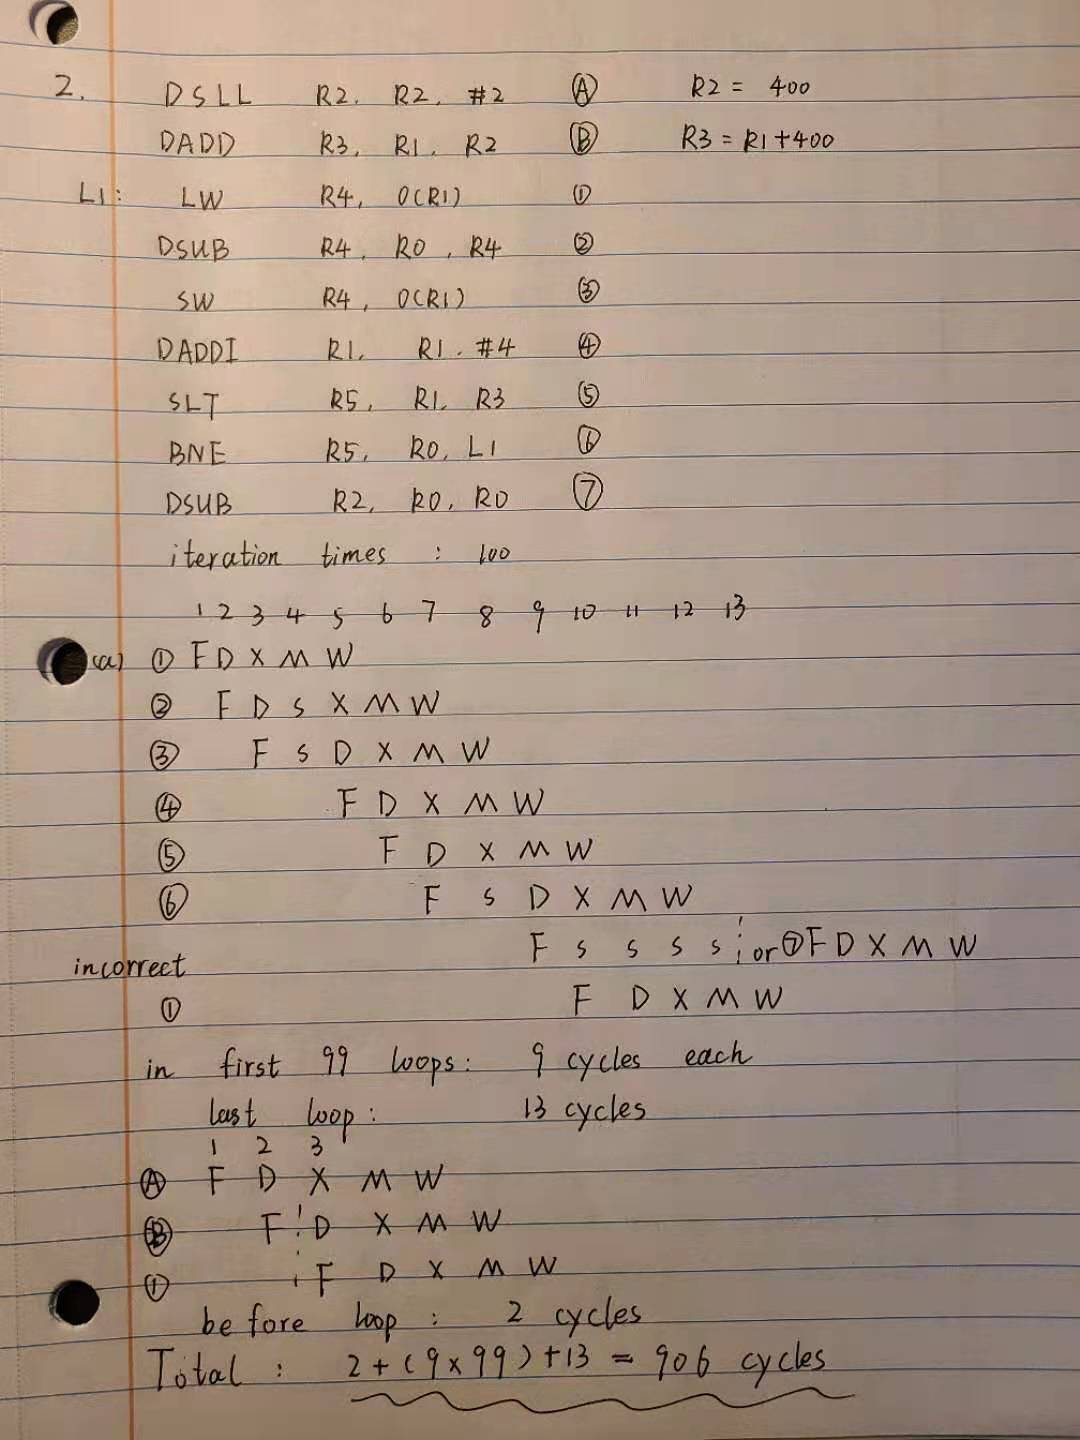 2. DSLL R2, R2, #2 Ⓐ R2 = 400
DADD R3, R1, R2 Ⓑ R3 = R1+400
L1: LW R4, 0(R1) ①
DSUB R4, R0, R4 ②
SW R4, 0(R1) ③
DADDI R1, R1, #4 ④
SLT R5, R1, R3 ⑤
BNE R5, R0, L1 ⑥
DSUB R2, R0, R0 ⑦
iteration times : 100
1 2 3 4 5 6 7 8 9 10 11 12 13
(a) ① F D X M W
② F D S X M W
③ F S D X M W
④ F D X M W
⑤ F D X M W
⑥ F S D X M W
F S S S S or ⑦ F D X M W
incorrect
① F D X M W
in first 99 loops: 9 cycles each
last loop: 13 cycles
1 2 3
Ⓐ F D X M W
Ⓑ F D X M W
① F D X M W
before loop : 2 cycles
Total : 2+(9×99)+13 = 906 cycles